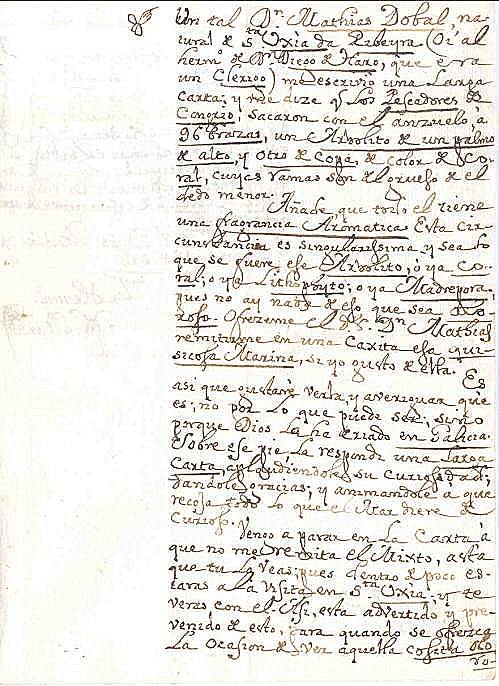 85
Un tal Dn. Mathias Dobal, na
tural de Sta. Uxia da Ribeyra (Oí al
hermo. de Dn. Diego de Haro, que era
un Clerigo) me escrivió una Larga
Carta; y me dize qe. Los Pescadores de
Cangrejo, Sacaron con el anzuelo, a
96 brazas, un Arbolito de un palmo
de alto, y Otro de Copa, de color de Co-
ral, cuyas ramas son del grueso de el
dedo menor.
Añade, que todo el tiene
una fragrancia Aromatica. Esta Cir-
cunstancia es singularissima, y sea lo
que se fuere ese Arbolito; ó ya Co-
ral; o ya Lithophyto; o ya Madrepora,
pues no ay nada de eso que sea Olo-
roso. Ofrezeme el Dn. Mathias
remitirme en una Caxita esa qui-
sicosa Marina, si yo gusto de ella.
Es
asi que gustarè verla, y averiguar què
es; no por Lo que puede ser; sino
porque Dios La ha criado en Galicia.
Sobre ese pie, La respondi una Larga
Carta, aplaudiendole su Curiosidad;
dandole gracias; y animandole a que
recoja todo lo que el Mar diere de
Curioso.
Vengo a parar en La Carta, à
que no me remita el Mixto, asta
que tu La Veas; pues dentro de poco es-
taras a La Visita en Sta. Uxia; y te
veras con el. Asi, esta advertido, y pre-
venido de esto, para quando se ofrezca
La Ocasion de Ver aquella Cosita Olo
ro-